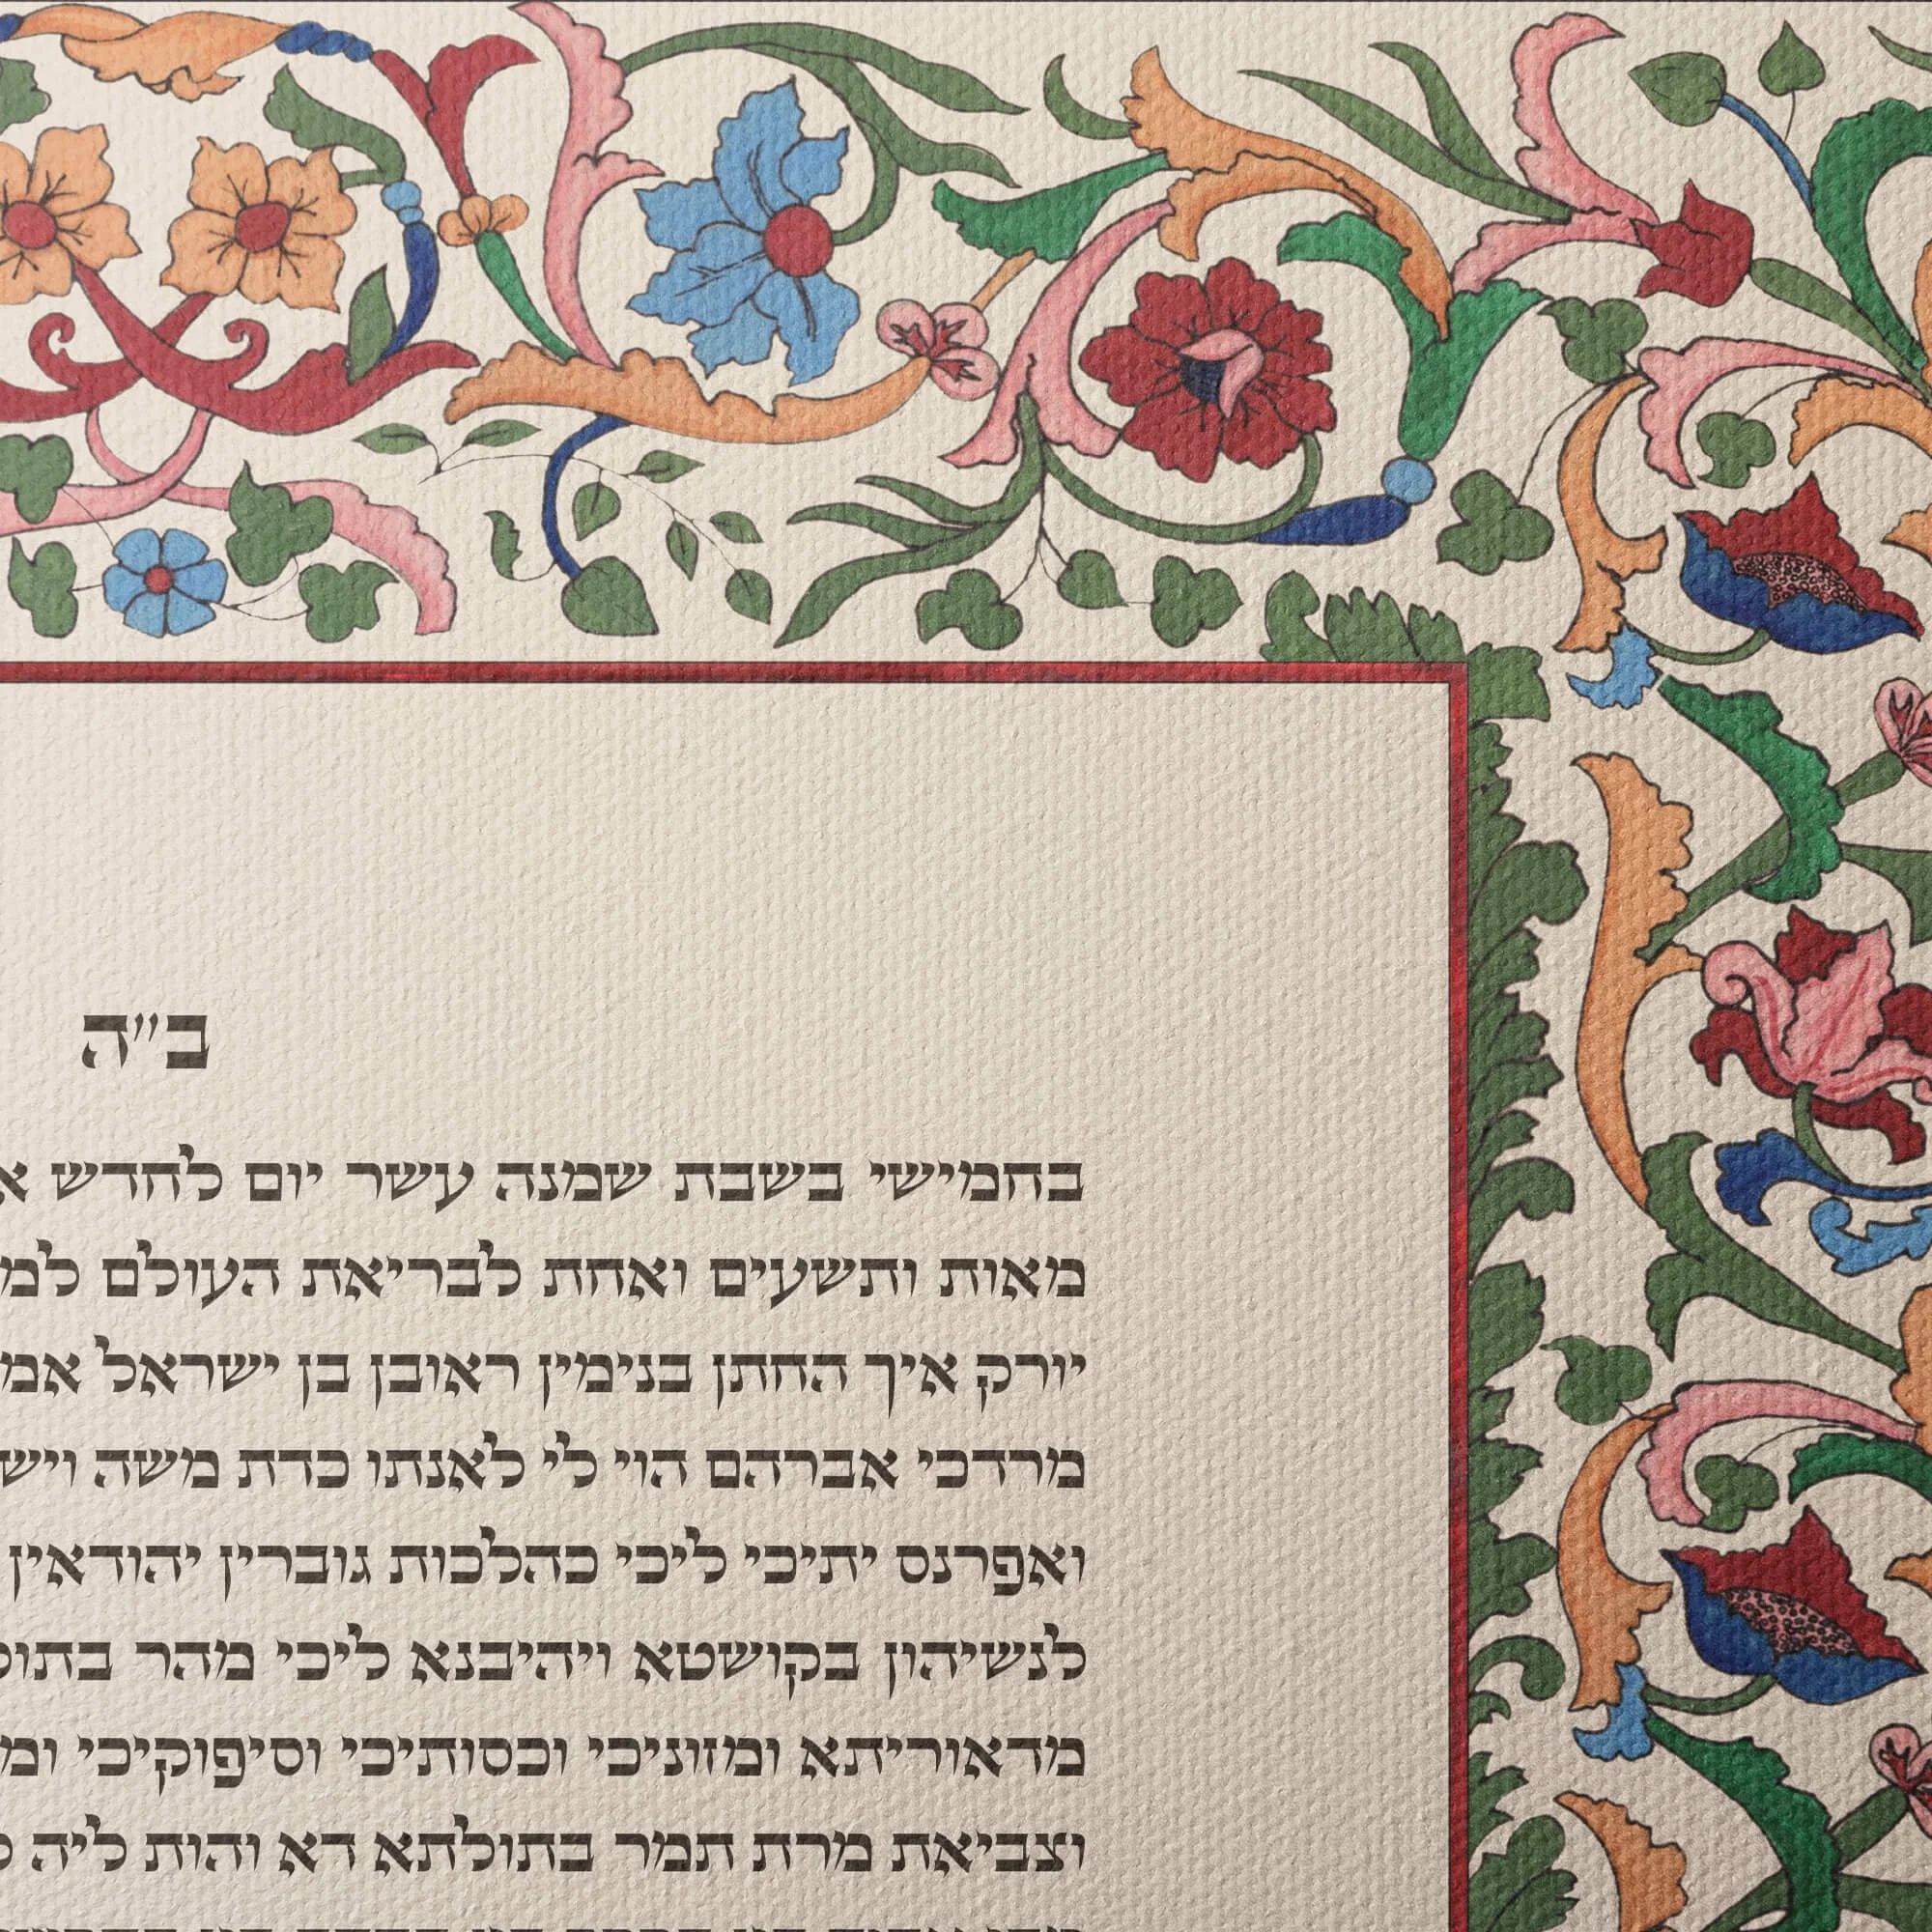 ב״ה
בחמישי בשבת שמנה עשר יום לחדש
מאות ותשעים ואחת לבריאת העולם
יורק איך החתן בנימין ראובן בן ישראל
מרדכי אברהם הוי לי לאנתו כדת משה
ואפרנס יתיכי ליכי כהלכות גוברין יהודאין
לנשיהון בקושטא ויהיבנא ליכי מהר
מדאוריתא ומזוניכי וכסותיכי וסיפוקיכי
וצביאת מרת תמר בתולתא דא והות ליה